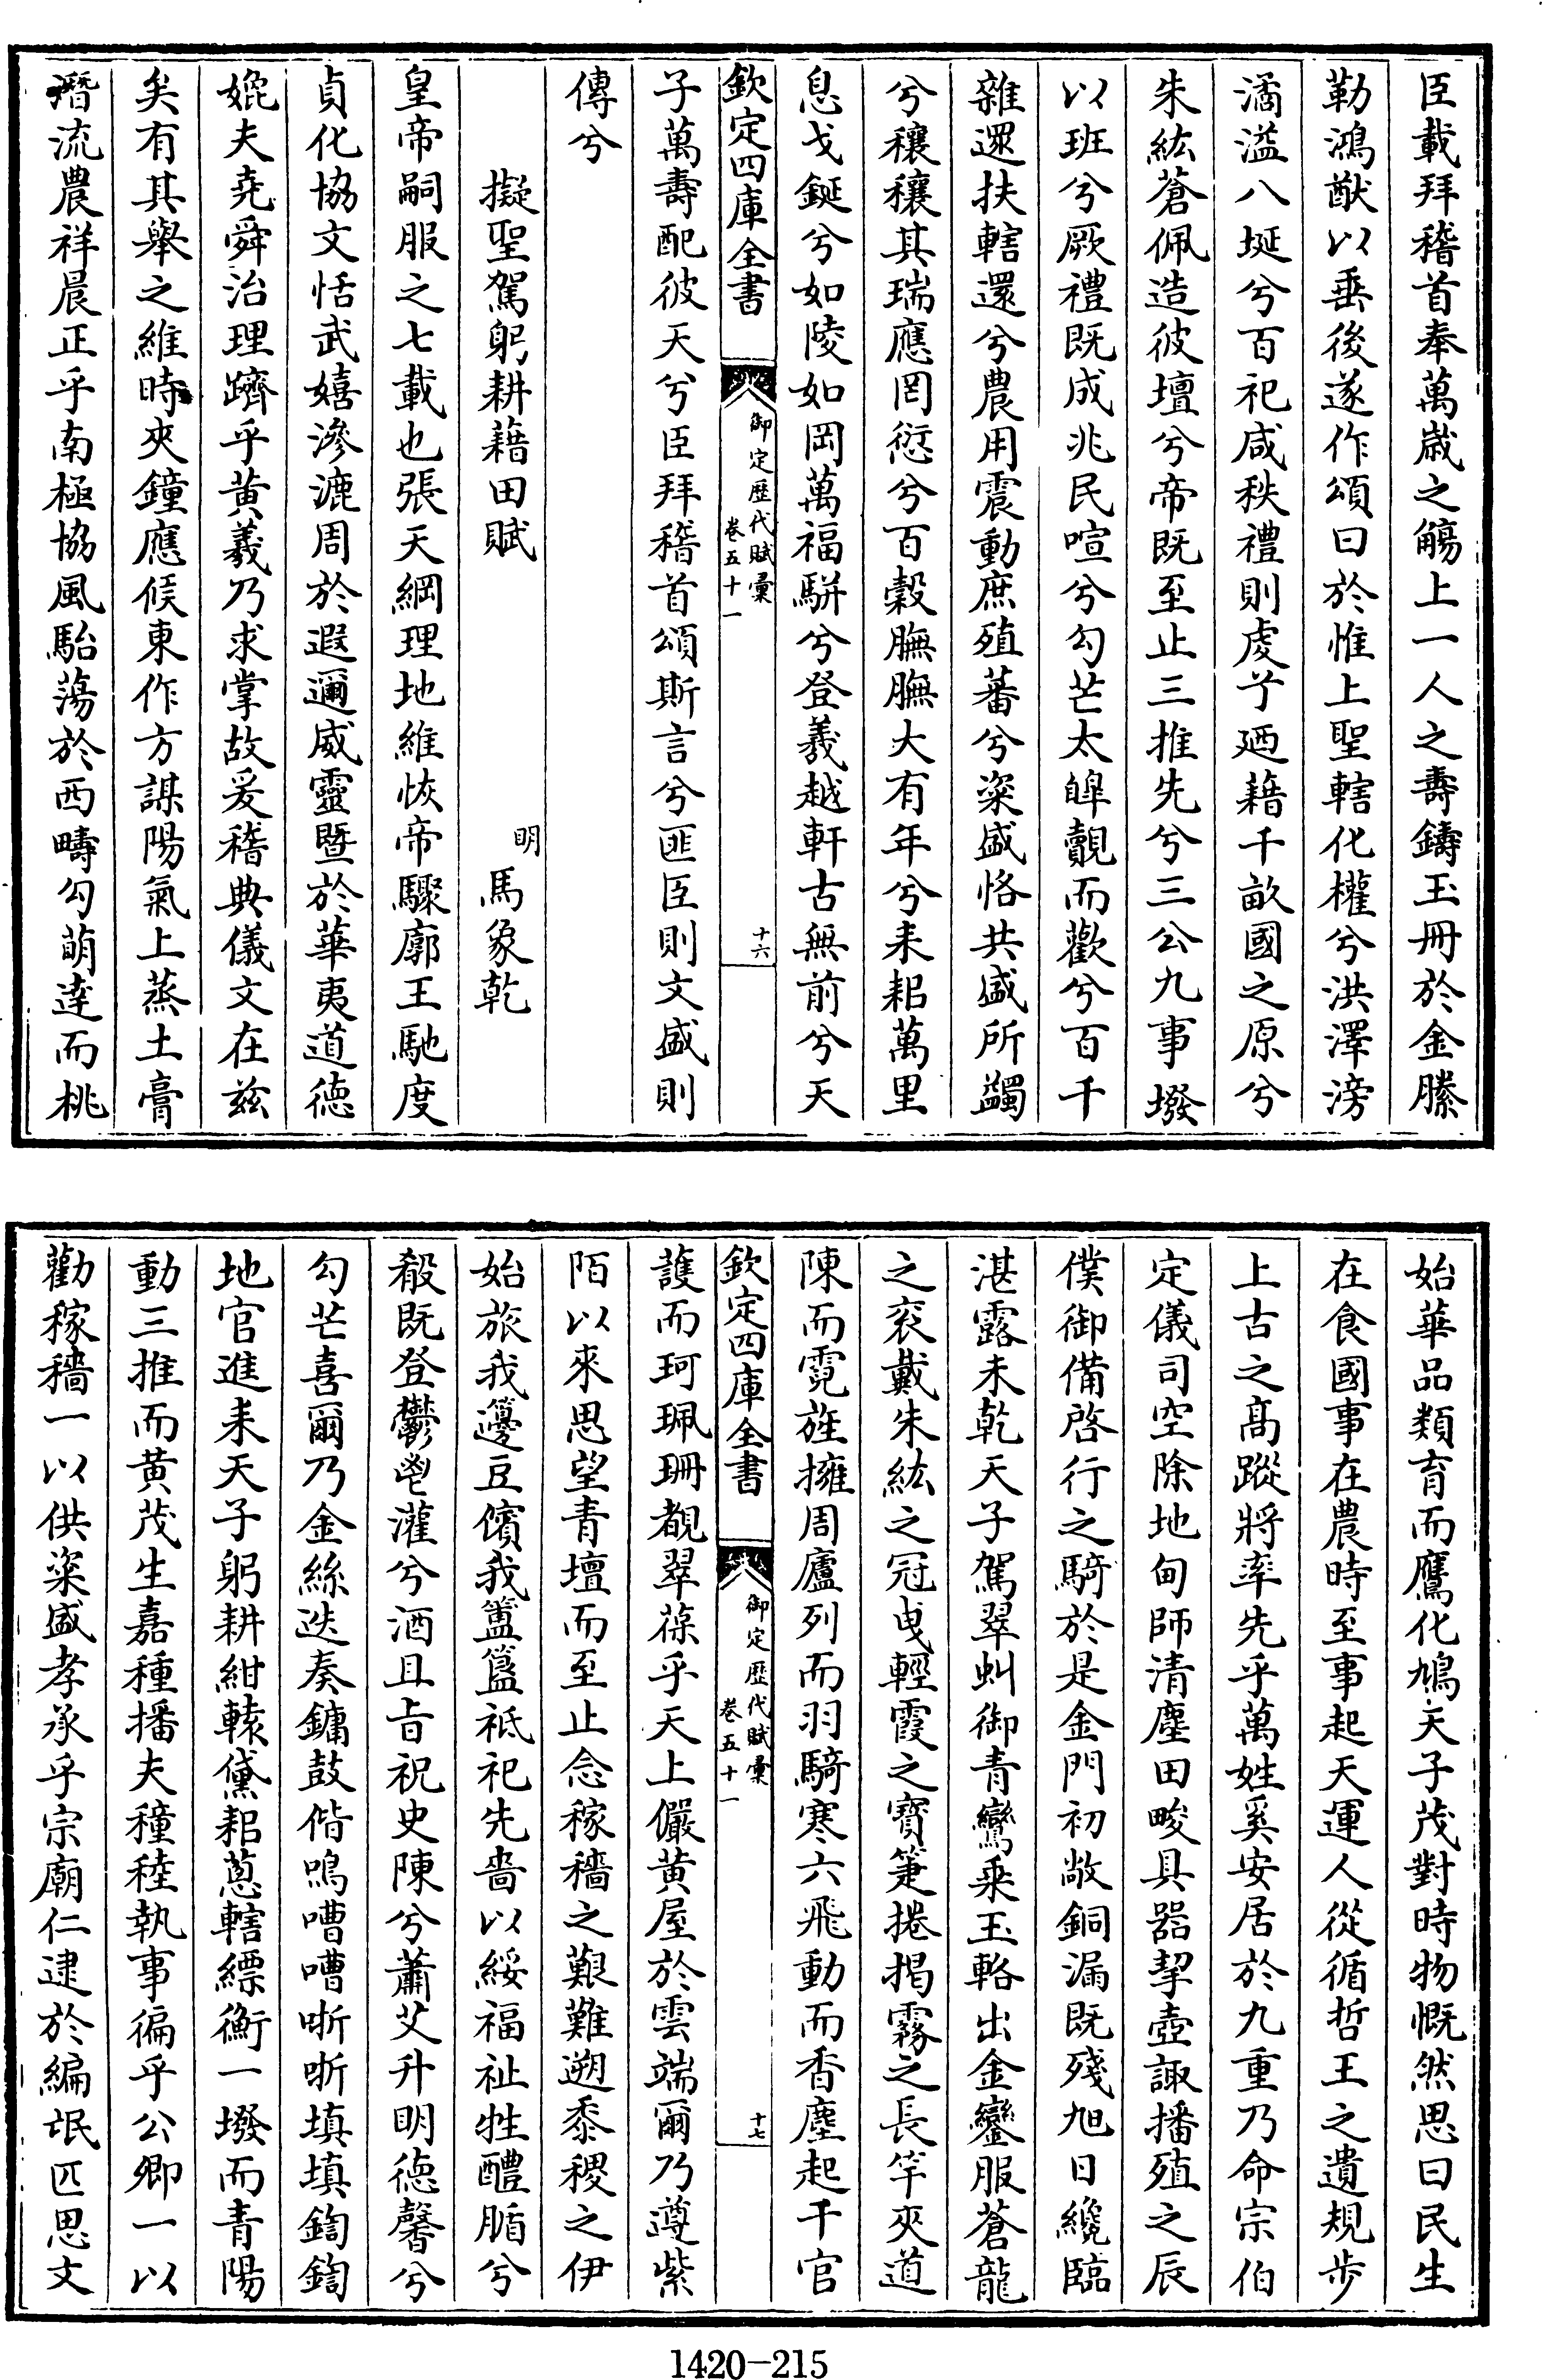 臣載拜稽首奉萬歲之觴上一人之壽鑄玉冊於金縢
勒鴻猷以垂後遂作頌曰於惟上聖轄化權兮洪澤滂
潏溢八埏兮百祀咸秩禮則虔兮廼藉千畝國之原兮
朱紘蒼佩造彼壇兮帝既至止三推先兮三公九事墢
以班兮厥禮既成兆民喧兮勾芒太皥覿而歡兮百千
雜遝扶轄還兮農用震動庶殖蕃兮粢盛恪共盛所蠲
兮穰穰其瑞應罔愆兮百穀膴膴大有年兮耒耜萬里
息戈鋋兮如陵如岡萬福駢兮登羲越軒古無前兮天
欽定四庫全書
御定歷代賦彙
卷五十一
十六
子萬壽配彼天兮臣拜稽首頌斯言兮匪臣則文盛則
傳兮
擬聖駕躬耕藉田賦
明
馬象乾
皇帝嗣服之七載也張天綱理地維恢帝驟廓王馳度
貞化協文恬武嬉滲漉周於遐邇威靈曁於華夷道德
媲夫堯舜治理躋乎黃羲乃求掌故爰稽典儀文在兹
矣有其舉之維時夾鐘應候東作方謀陽氣上蒸土膏
潛流農祥晨正乎南極協風駘蕩於西疇勾萌達而桃
始華品類育而鷹化鳩天子茂對時物慨然思曰民生
在食國事在農時至事起天運人從循哲王之遺規步
上古之髙蹤將率先乎萬姓奚安居於九重乃命宗伯
定儀司空除地甸師清塵田畯具器挈壺諏播殖之辰
僕御備啓行之騎於是金門初敞銅漏既殘旭日纔臨
湛露未乾天子駕翠虯御青鸞乘玉輅出金鑾服蒼龍
之衮戴朱紘之冠曳輕霞之寶箑捲揭霧之長竿夾道
陳而霓旌擁周廬列而羽騎寒六飛動而香塵起千官
欽定四庫全書
御定歷代賦彙
卷五十一
十七
䕶而珂珮珊覩翠葆乎天上儼黃屋於雲端爾乃遵紫
陌以來思望青壇而至止念稼穡之艱難遡黍稷之伊
始旅我籩豆儐我簠簋祗祀先嗇以綏福祉牲醴腯兮
殽既登鬱鬯灌兮酒且㫖祝史陳兮蕭艾升明德馨兮
勾芒喜爾乃金絲迭奏鏞鼓偕鳴嘈嘈哳哳填填鍧鍧
地官進耒天子躬耕紺轅黛耜蔥轄縹衡一墢而青陽
動三推而黃茂生嘉種播夫穜稑執事徧乎公卿一以
勸稼穡一以供粢盛孝承乎宗廟仁逮於編氓匹思文
1420-215